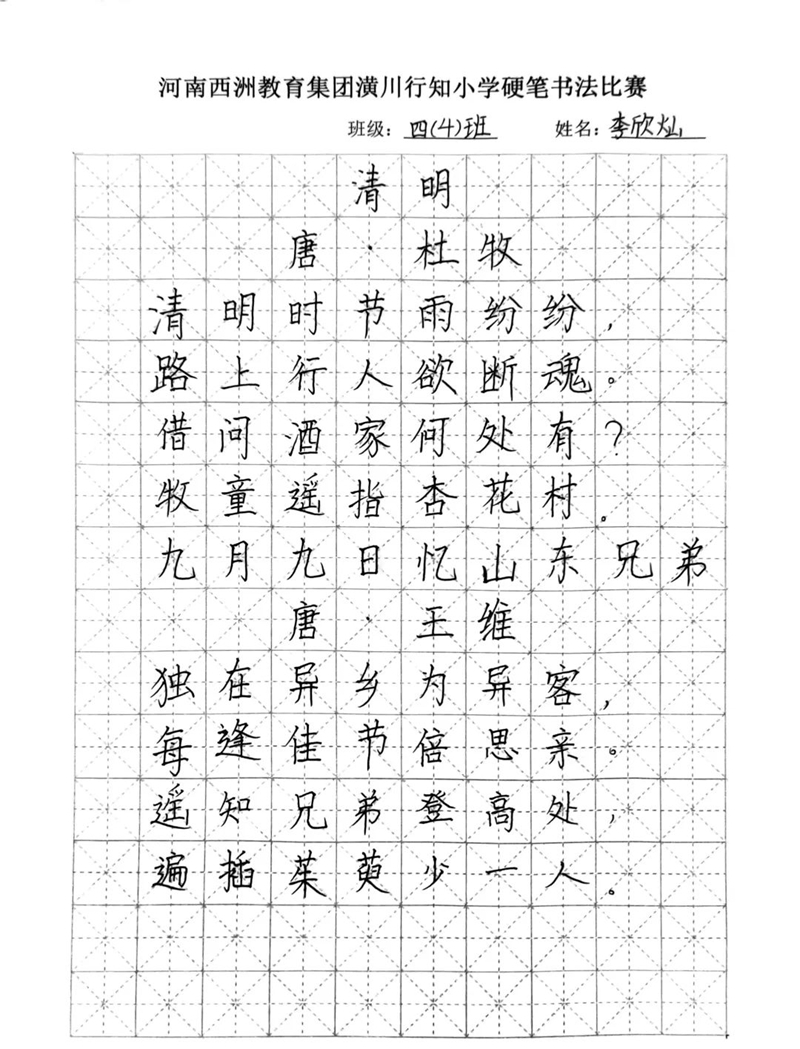 河南西洲教育集团潢川行知小学硬笔书法比赛
班级：四(4)班 姓名：李欣灿
清明
唐·杜牧
清明时节雨纷纷，
路上行人欲断魂。
借问酒家何处有？
牧童遥指杏花村。
九月九日忆山东兄弟
唐·王维
独在异乡为异客，
每逢佳节倍思亲。
遥知兄弟登高处，
遍插茱萸少一人。